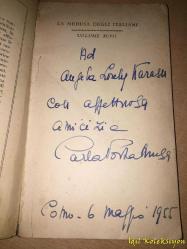 LA MEDUSA DEGLI ITALIANI
VOLUME XCVII
Ad
Angela
con affettuosa
amicizia
Carla Porta Musa
Como. 6 maggio 1955
İzgil Koleksiyon